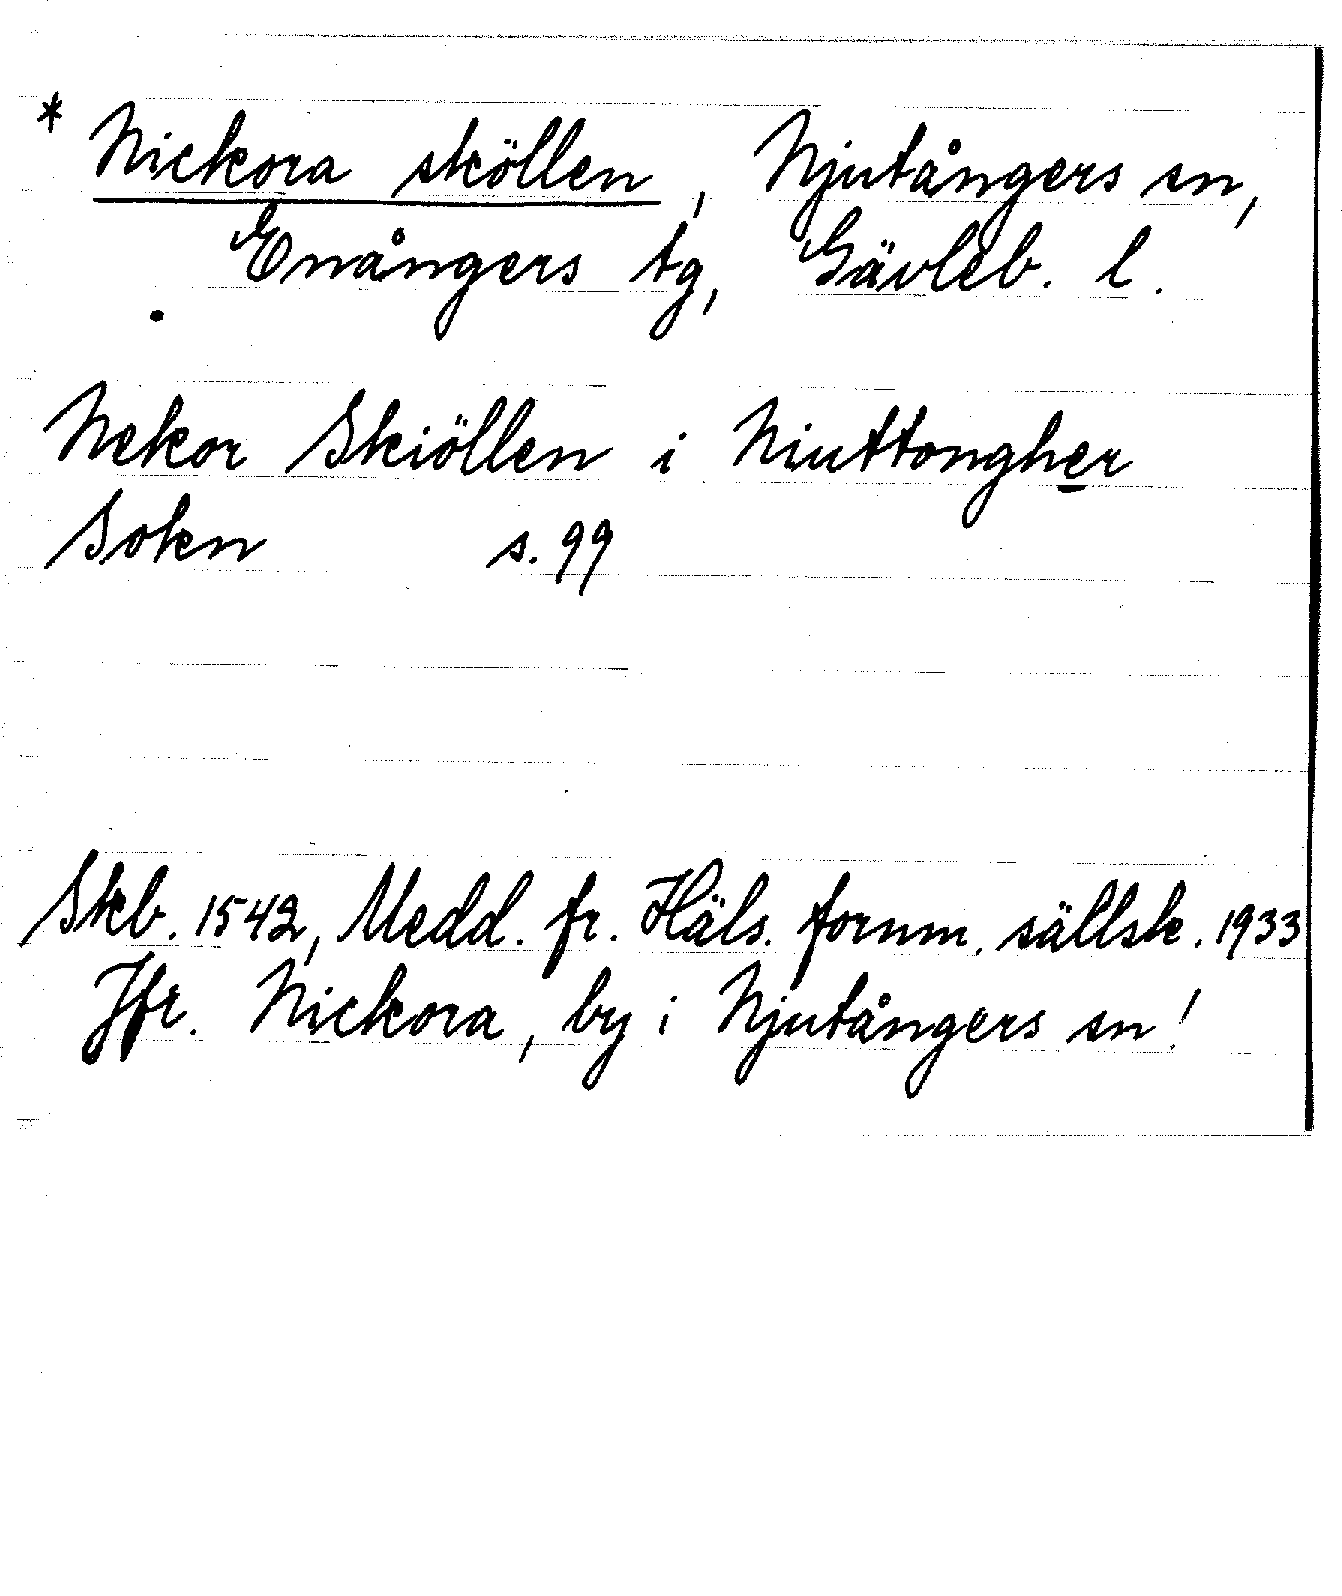 * Nickora sköllen, Njutångers sn,
Enångers tg, Gävleb. l.
Nekor Skiöllen i Niuttongher
Sokn s. 99
Skb. 1542, Medd. fr. Häls. fornm. sällsk. 1933
Jfr. Nickora, by i Njutångers sn!